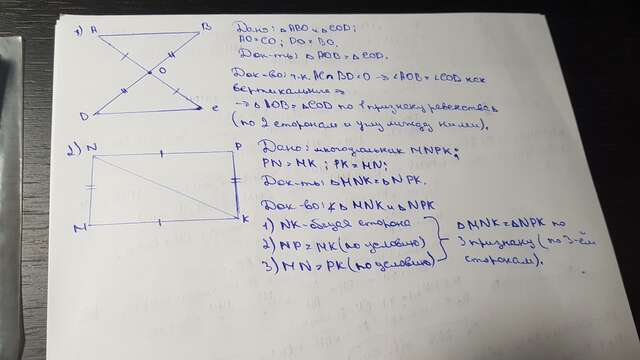 1) A B
O
D C
Дано: △ABO и △COD;
AO=CO; DO=BO.
Док-ть: △AOB=△COD.
Док-во: т.к. AC∩BD=O → ∠AOB=∠COD как
вертикальные ⇒
→ △AOB=△COD по 1 признаку равенства
(по 2 сторонам и углу между ними).
2) N P
M K
Дано: многоугольник MNPK;
PN=MK; PK=MN;
Док-ть: △MNK=△NPK.
Док-во: △MNK и △NPK
1) NK-общая сторона
2) NP=MK (по условию)
3) MN=PK (по условию)
△MNK=△NPK по
3 признаку (по 3-ём
сторонам).